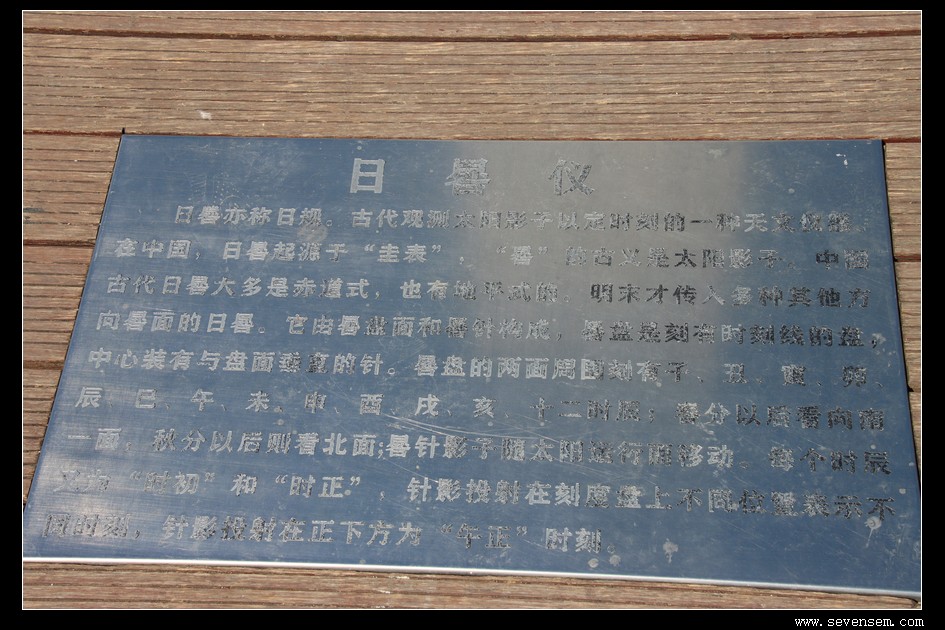 日晷仪
日晷亦称日规。古代观测太阳影子以定时刻的一种天文仪器。
在中国，日晷起源于“圭表”，“晷”的古义是太阳影子。中国
古代日晷大多是赤道式，也有地平式的，明末才传入多种其他方
向晷面的日晷。它由晷盘面和晷针构成，晷盘是刻有时刻线的盘，
中心装有与盘面垂直的针。晷盘的两面周围刻有子、丑、寅、卯、
辰、巳、午、未、申、酉、戌、亥、十二时辰；春分以后看向南
一面，秋分以后则看北面；晷针影子随太阳运行而移动。每个时辰
又为“时初”和“时正”，针影投射在刻度盘上不同位置表示不
同时刻，针影投射在正下方为“午正”时刻。
www.sevensem.com